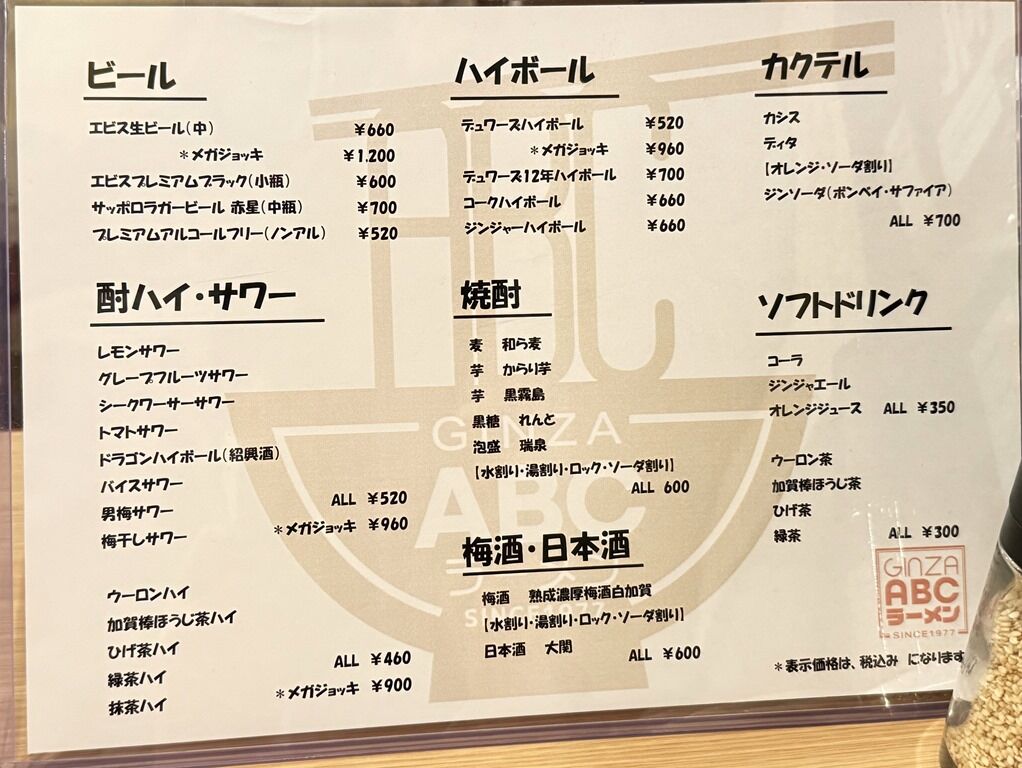 ビール
エビス生ビール(中) ¥660
*メガジョッキ ¥1,200
エビスプレミアムブラック(小瓶) ¥600
サッポロラガービール 赤星(中瓶) ¥700
プレミアムアルコールフリー(ノンアル) ¥520
ハイボール
デュワーズハイボール ¥520
*メガジョッキ ¥960
デュワーズ12年ハイボール ¥700
コークハイボール ¥660
ジンジャーハイボール ¥660
カクテル
カシス
ディタ
【オレンジ・ソーダ割り】
ジンソーダ(ボンベイ・サファイア)
ALL ¥700
酎ハイ・サワー
レモンサワー
グレープフルーツサワー
シークワーサーサワー
トマトサワー
ドラゴンハイボール(紹興酒)
バイスサワー
男梅サワー ALL ¥520
梅干しサワー *メガジョッキ ¥960
ウーロンハイ
加賀棒ほうじ茶ハイ
ひげ茶ハイ
緑茶ハイ ALL ¥460
抹茶ハイ *メガジョッキ ¥900
焼酎
麦 和ら麦
芋 からり芋
芋 黒霧島
黒糖 れんと
泡盛 瑞泉
【水割り・湯割り・ロック・ソーダ割り】
ALL 600
梅酒・日本酒
梅酒 熟成濃厚梅酒白加賀
【水割り・湯割り・ロック・ソーダ割り】
日本酒 大関 ALL ¥600
ソフトドリンク
コーラ
ジンジャエール
オレンジジュース ALL ¥350
ウーロン茶
加賀棒ほうじ茶
ひげ茶
緑茶 ALL ¥300
GINZA
ABC
ラーメン
SINCE1977
*表示価格は、税込み になります
ABC
GINZA
ABC
ラーメン
SINCE1977